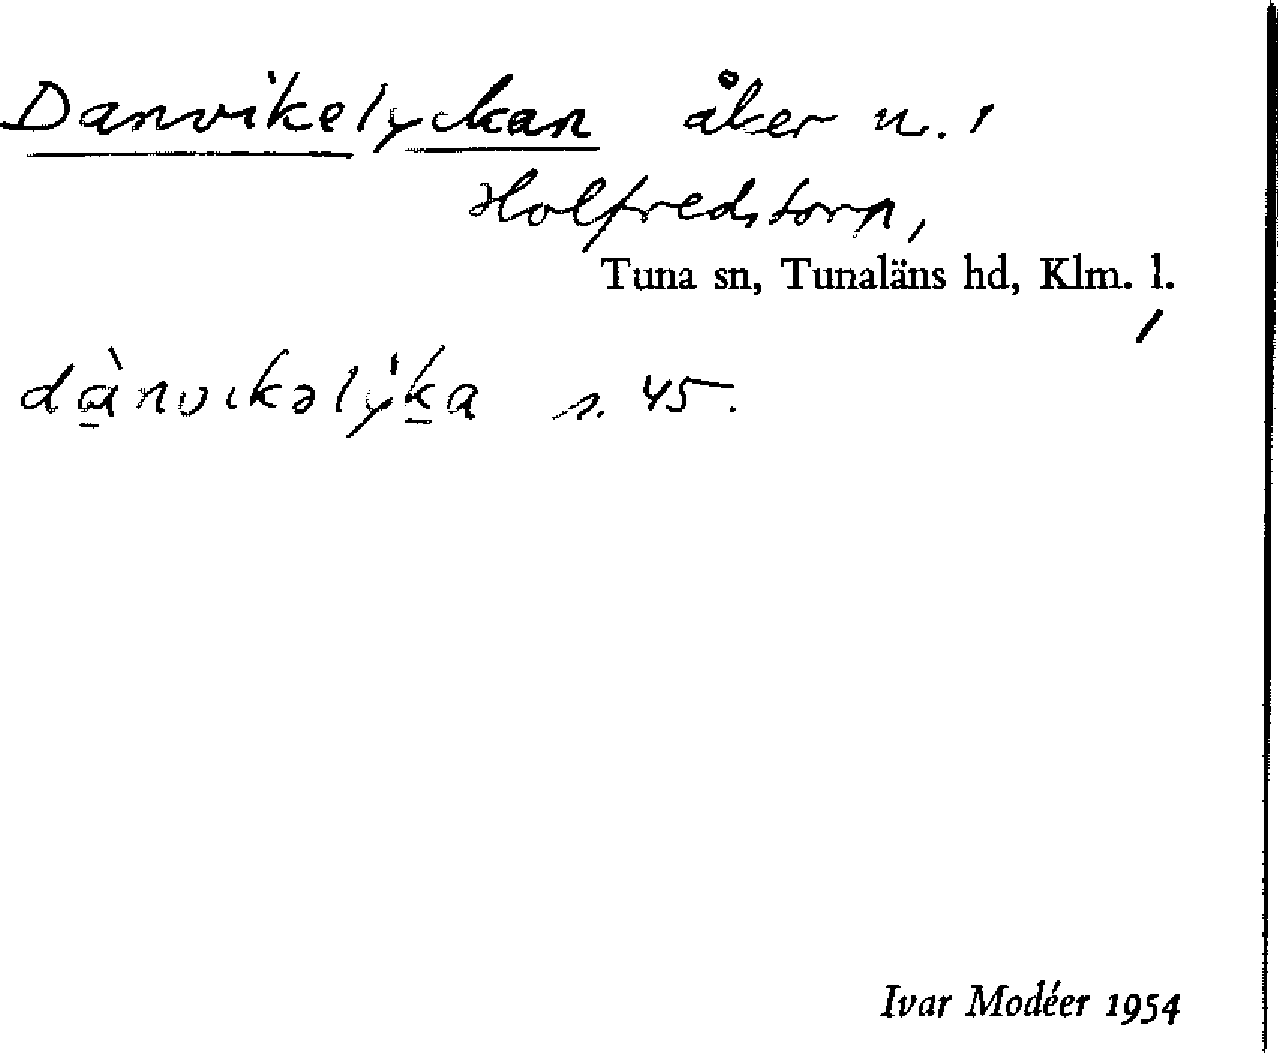 Danvikelyckan åker u. 1
Holfredstorp,
Tuna sn, Tunaläns hd, Klm. l.
dànvıkəlýka s. 45.
Ivar Modéer 1954